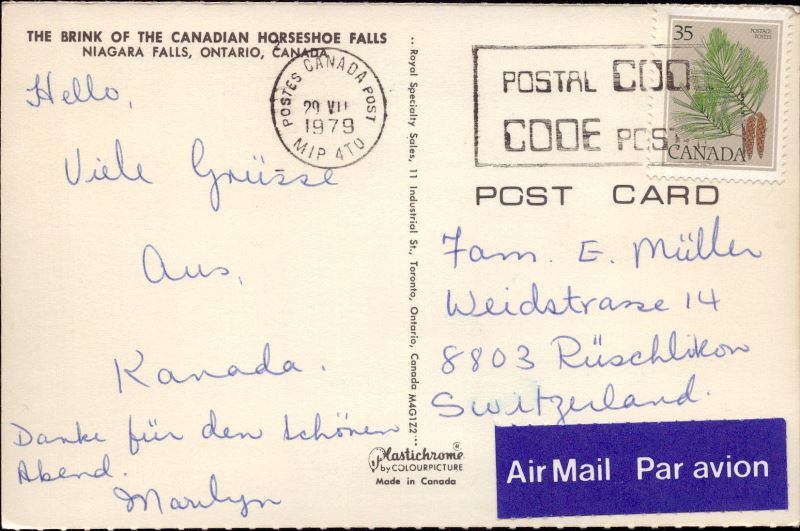 THE BRINK OF THE CANADIAN HORSESHOE FALLS
NIAGARA FALLS, ONTARIO, CANADA
Hello,
Viele Grüsse
Aus,
Kanada.
Danke für den schönen
Abend.
Marilyn
POSTES CANADA POST
29 VII
1979
MIP 4TO
.. Royal Specialty Sales, 11 Industrial St., Toronto, Ontario, Canada M4G1Z2 ..
Plastichrome®
by COLOURPICTURE
Made in Canada
POSTAL CODE
CODE POSTAL
35
POSTAGE
POSTES
CANADA
POST CARD
Fam. E. Müller
Weidstrasse 14
8803 Rüschlikon
Switzerland.
Air Mail Par avion